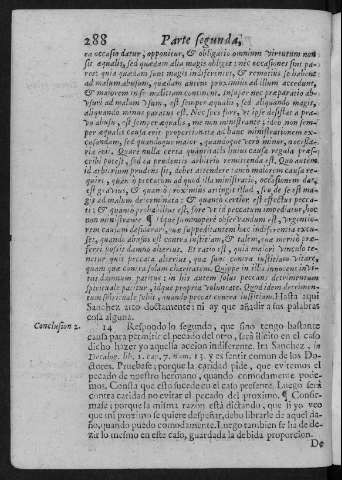 288 Parte segunda,
ta occasio datur, opponitur, & obligatio omnium virtutum non
sit æqualis, sed quædam alia magis obliget; nec occasiones sint pa-
res: quia quædam sunt magis indiferentes, & remotius se habent
ad malum abusum, quædam autem proximius ad illum accedant,
& maiorem in se malitiam continent, insuper nec præparatio ab-
usuri ad malum usum, est semper æqualis, sed aliquando magis,
aliquando minus paratus est. Nec fiet fore, ut ipse desistat a pra-
vo abusu, est semper æqualis, me non ministrante; ideo non sem-
per æqualis causa erit proportionata ad hanc ministrationem ex-
cusandam, sed quandoque maior, quandoque vero minor, necessa-
ria erit. Quare nulla certa quantitatis huius causæ regula præs-
cribi potest, sed ea prudentis arbitrio remittenda est. Quo autem
id arbitrium prudens sit, debet attendere tanto maiorem causa re-
quiri, quanto peccatum ad quod illa ministratio, occasionem dat,
est gravius, & quanto proximius attingit illud, seu de se est ma-
gis ad malum determinata; & quanto certior est effectus pecca-
ti; & quanto probabilius est, fore ut peccatum impediatur, hoc
non ministrante. ¶ Idque summopere observandum est, urgentio-
rem causam desiderari, quæ suppeditantem hæc indiferentia excu-
set, quando abusus est contra iustitiam, & talem, quæ meritò præ-
ferri possit damno alterius. Et ratio est, quia maiori vinculo te-
netur quis evitare peccata alterius, quæ sunt contra iustitiam vitare,
quam quæ contra solam charitatem. Quippe in illis innocens invi-
tus damnum patitur; in his autem solus peccans detrimentum
spirituale patitur, idque propria voluntate. Quod idem detrimen-
tum spirituale subit, quando peccat contra iustitiam. Hasta aqui
Sanchez tan doctamente; ni ay que añadir a sus palabras
cosa alguna.
Conclusion 2. 14 Respondo lo segundo, que sino tengo bastante
causa para permitir el pecado del otro, será ilicito en el caso
dicho hazer yo aquella accion indiferente. Ita Sanchez, in
Decalog. lib. 1. cap. 7. num. 13. y es sentir comun de los Do-
ctores. Pruebase; porque la caridad pide, que evitemos el
pecado de nuestro hermano, quando comodamente pode-
mos. Consta que esto sucede en el caso presente. Luego será
contra caridad no evitar el pecado del proximo. ¶ Confir-
mase; porque la misma razon está dictando, que si yo veo
que mi proximo se quiere despeñar, debo librarle de aquel da-
ño, quando puedo comodamente. Luego tambien se ha de de-
zir lo mesmo en este caso, guardada la debida proporcion.
De